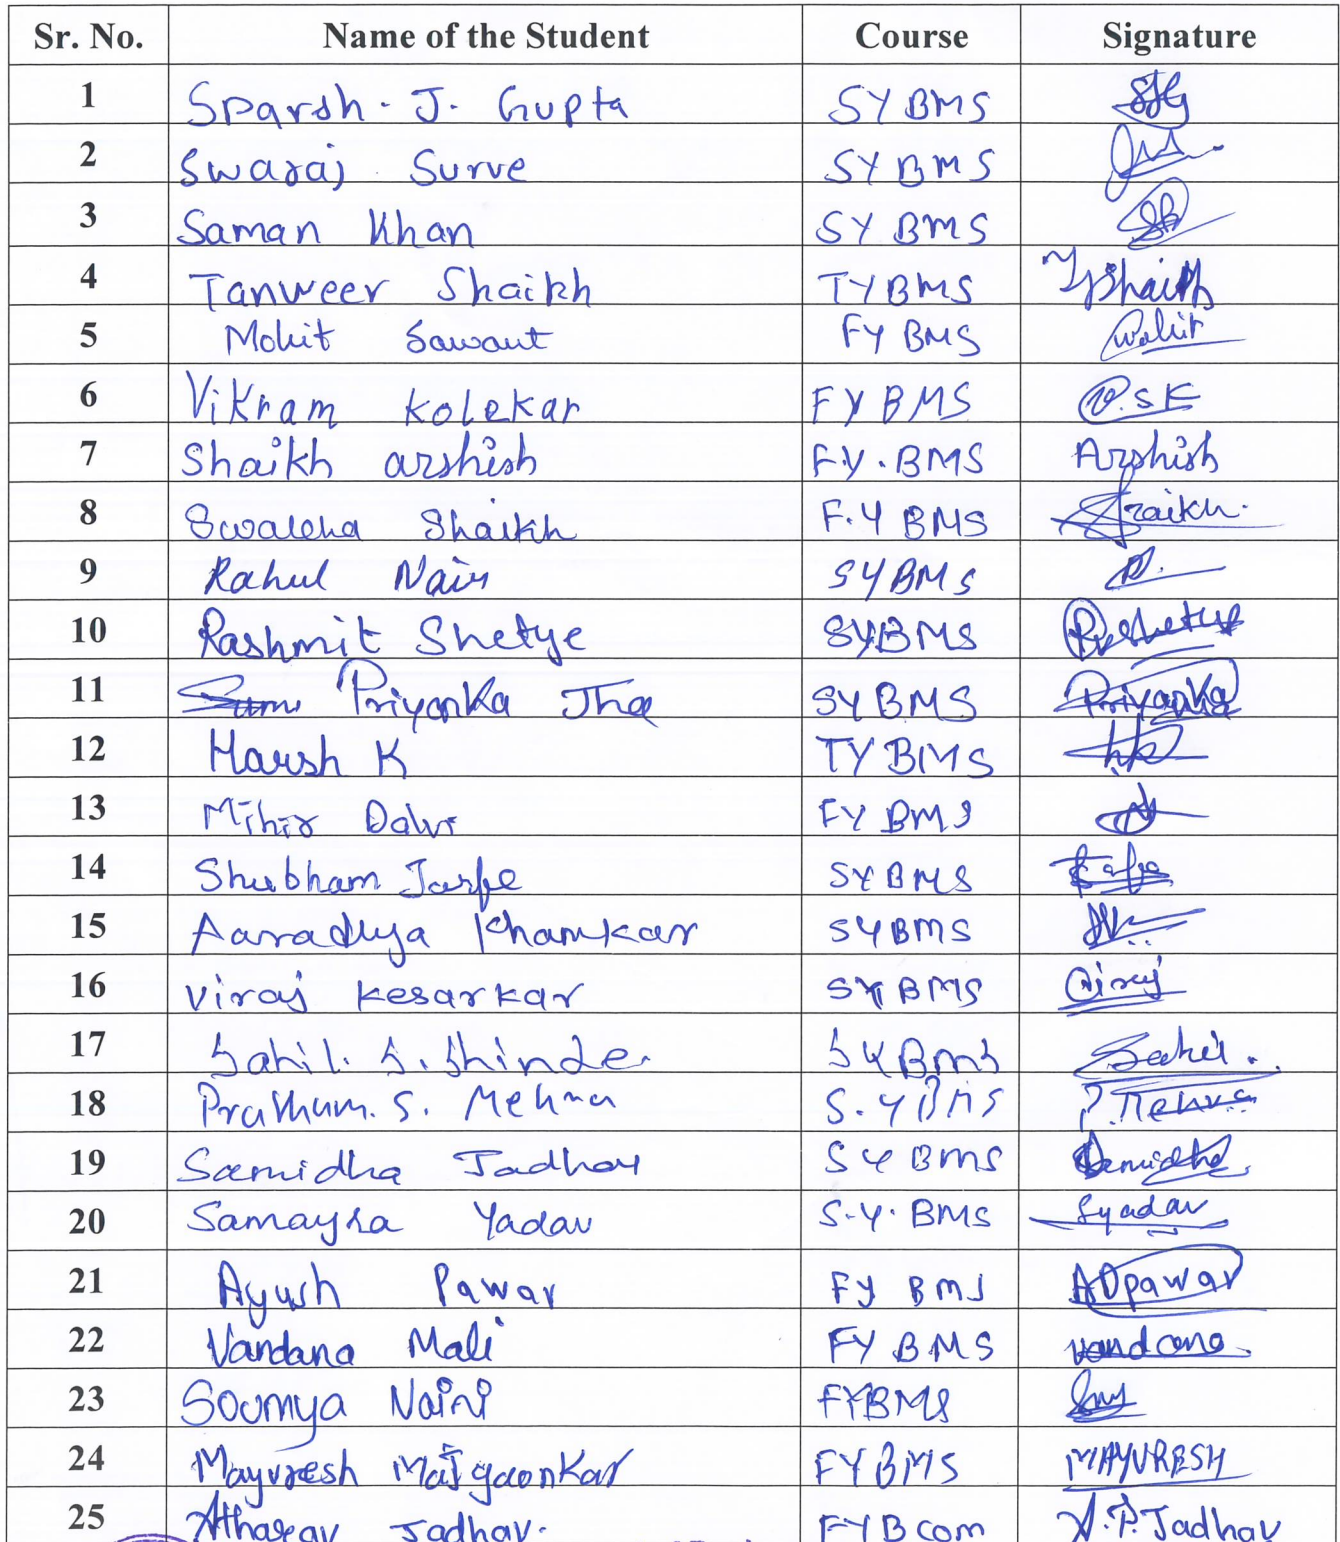 Sr. No. Name of the Student Course Signature
1 Sparsh. J. Gupta SYBMS SJG
2 Swaraj Surve SYBMS
3 Saman Khan SYBMS
4 Tanweer Shaikh TYBMS TShaikh
5 Mohit Sawant FYBMS Mohit
6 Vikram Kolekar FYBMS V.S K
7 Shaikh arshish F.Y.BMS Arshish
8 Swaleha Shaikh F.Y BMS Shaikh.
9 Rahul Nair SYBMS
10 Rashmit Shetye SYBMS RShetye
11 Priyanka Jha SYBMS Priyanka
12 Harsh K TYBMS hk
13 Mihir Dalvi FY BMS
14 Shubham SYBMS
15 Aaradhya Khamkar SYBMS
16 Viraj Kesarkar SYBMS Viraj
17 Sahil. S. Shinde. SYBMS Sahil.
18 Pratham. S. Mehra S.YBMS P.Mehra
19 Samidha Jadhav SYBMS Samidha
20 Samayra Yadav S.Y.BMS Syadav
21 Ayush Pawar FY BMS ADpawar
22 Vandana Mali FY BMS vandana.
23 Soumya Naini FYBMS
24 Mayuresh Majgaonkar FYBMS MAYURESH
25 Atharav Jadhav. FYBcom A.P.Jadhav